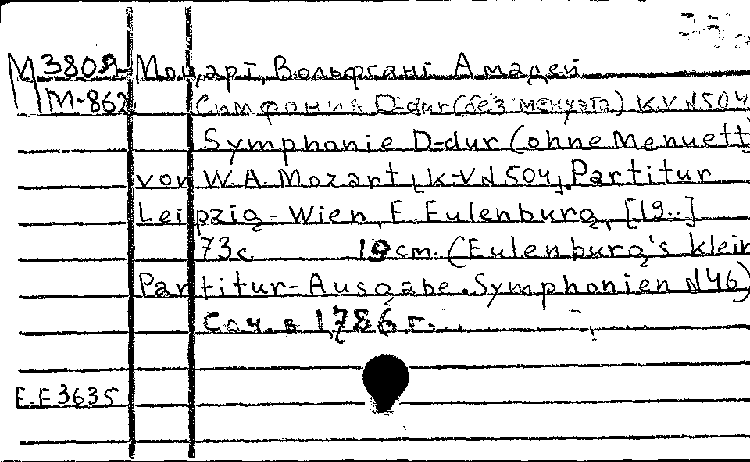 М3808 Моцарт, Вольфганг Амадей
М-862 Симфония D-dur (без менуэта) K.V N504
Symphonie D-dur (ohne Menuett)
von W.A. Mozart, K-V N 504, Partitur
Leipzig-Wien, E. Eulenburg, [19..]
73 с 19 cm. (Eulenburg's klein
Partitur-Ausgabe. Symphonien N46)
Соч. в 1786 г.
E.E 3635